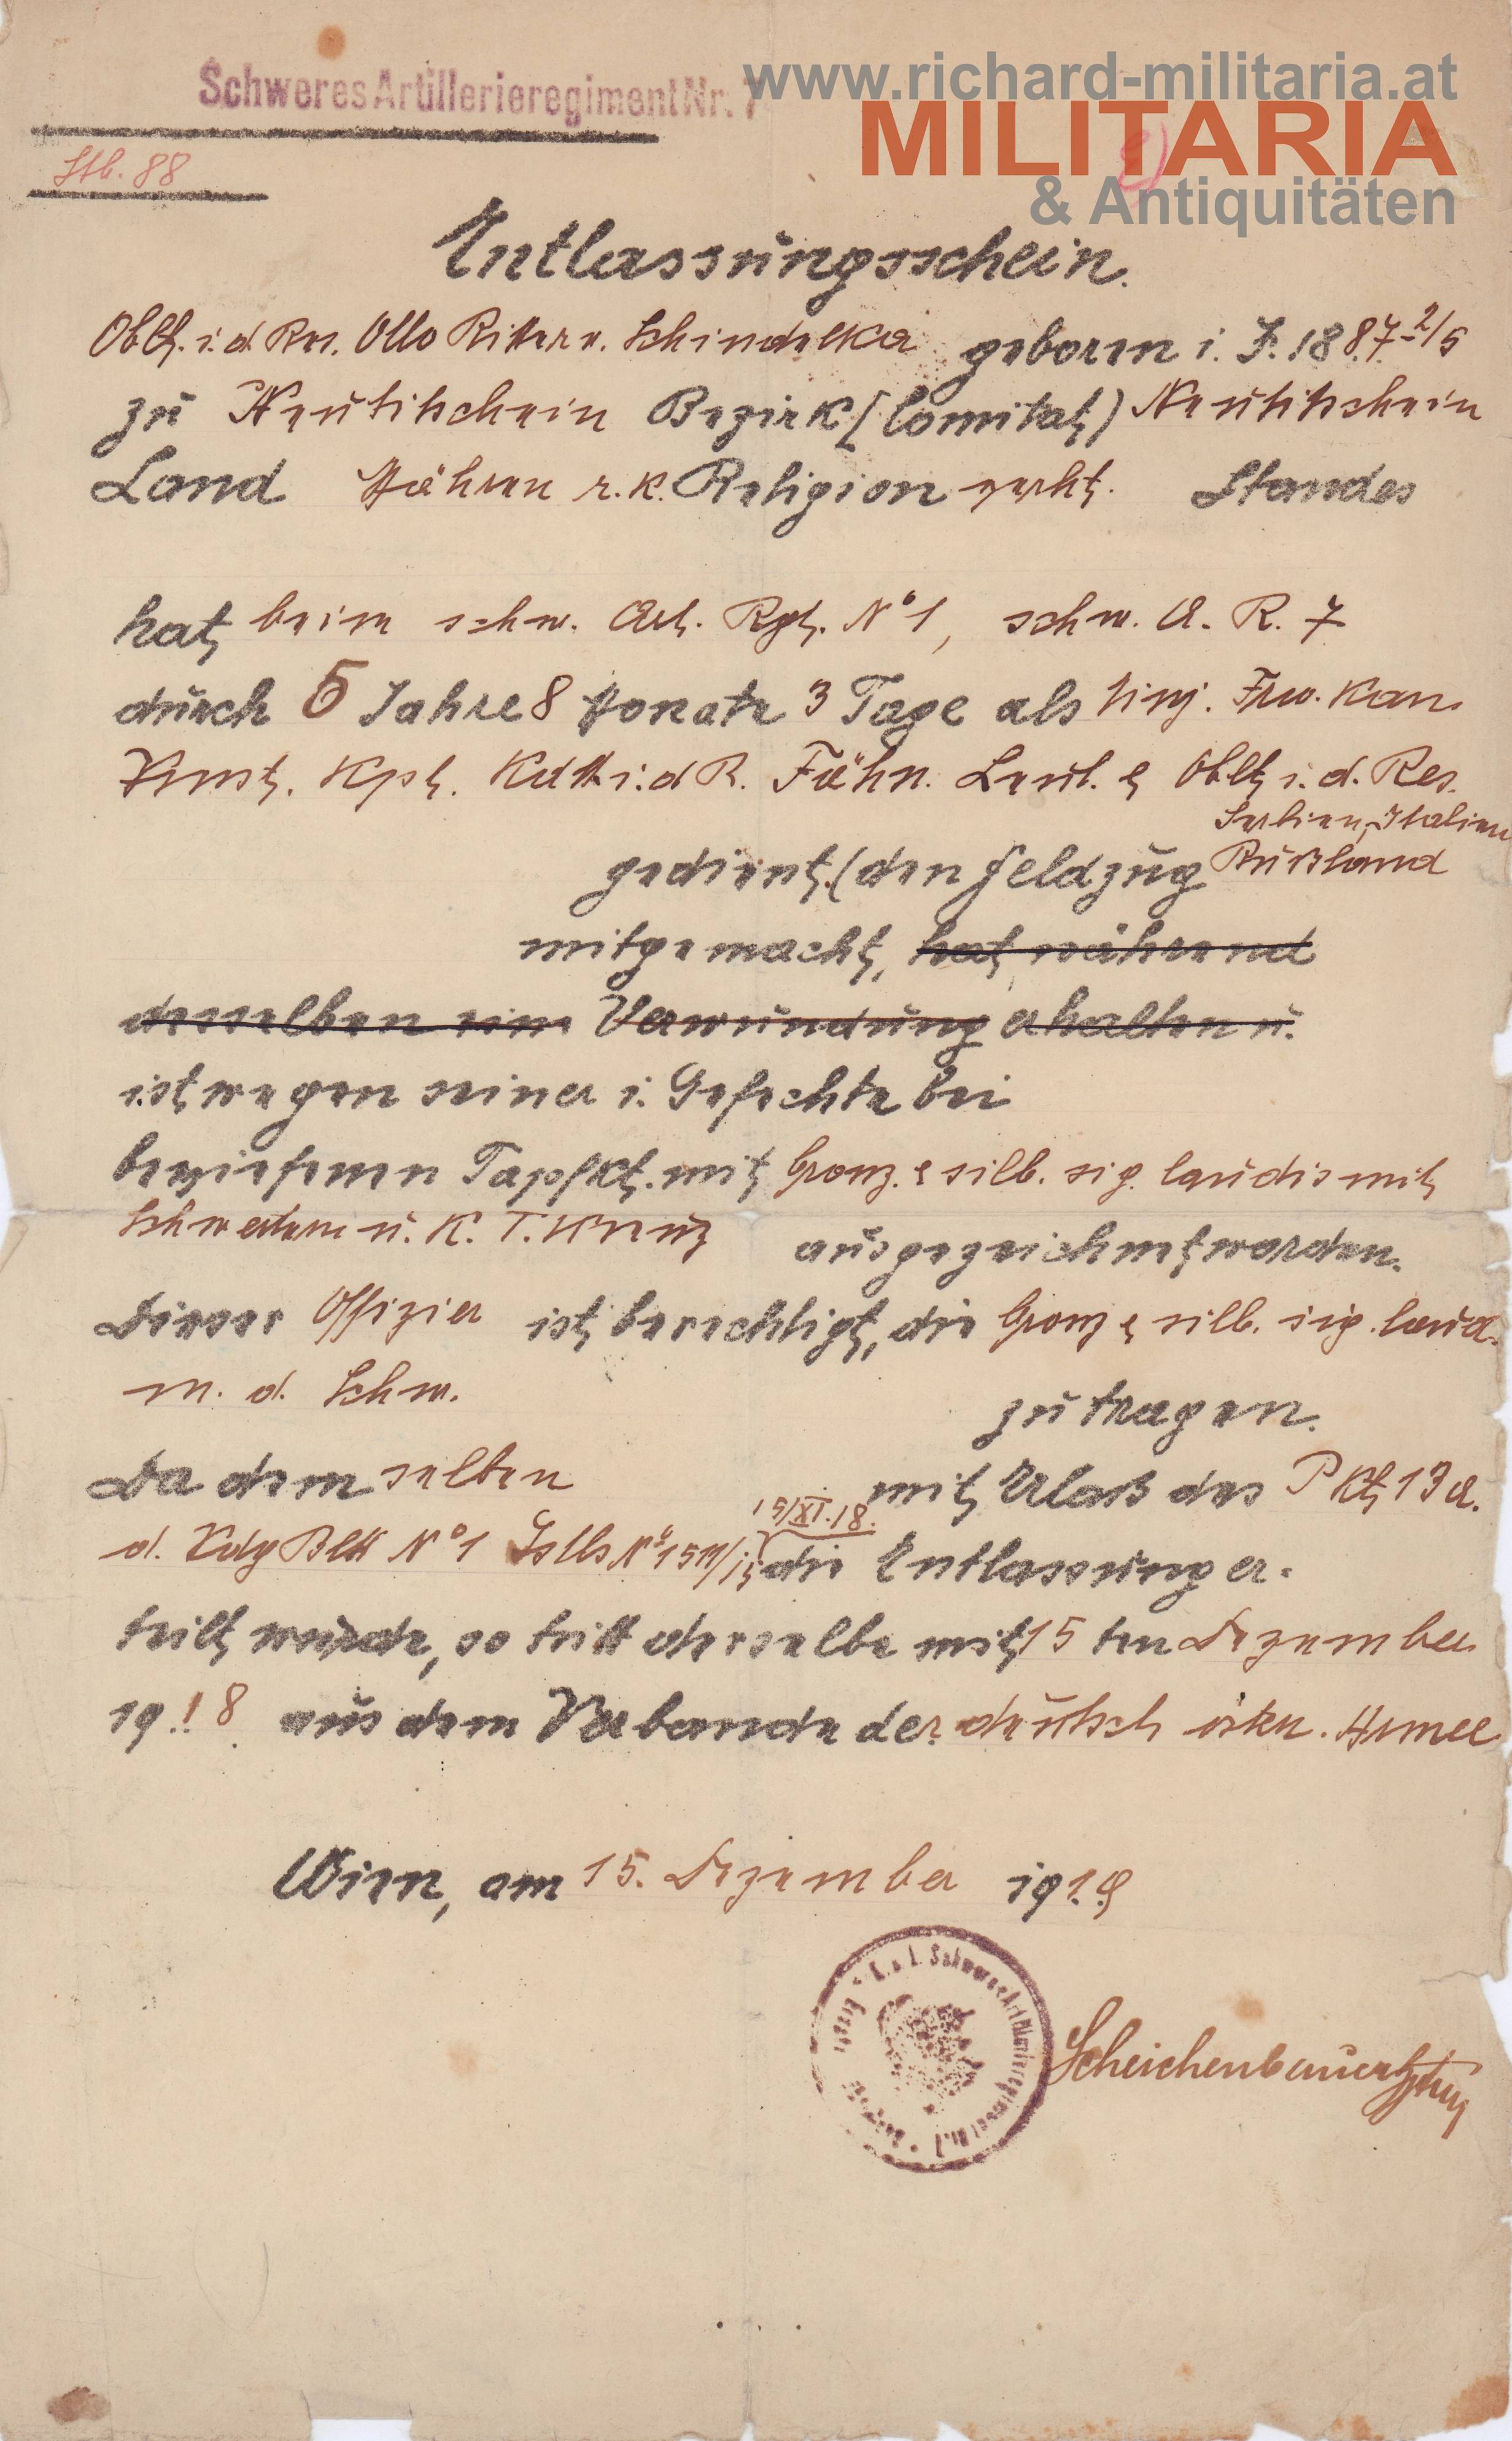 www.richard-militaria.at
MILITARIA
& Antiquitäten
Schweres Artillerieregiment Nr. 7
Stb. 88
Entlassungsschein.
Oblt. i. d. Res. Otto Ritter v. Schindelka geboren i. J. 1887 2/5
zu Neutitschein Bezirk (Comitat) Neutitschein
Land Mähren r. k. Religion Standes
hat beim schw. Art. Rgt. Nº 1, schw. A. R. 7
durch 5 Jahre 8 Monate 3 Tage als Einj. Frw. Kan.
Vmst. Kpl. Kdtt i. d R. Fähn. Leut. & Oblt i. d. Res.
Serbien, Italien
gedient. (den Feldzug Rußland
mitgemacht, hat während
desselben eine Verwundung erhalten u.
ist wegen seiner i. Gefechte bei
bewiesenen Tapfkt. mit bronz. & silb. sig. laudis mit
Schwertern u. K. T. Kreuz ausgezeichnet worden.
Dieser Offizier ist berechtigt, die bronz & silb. sig. laud.
m. d. Schw. zu tragen.
Da demselben mit Erlaß des Pkt 13 a.
15/XI. 18.
d. Vdg Bltt Nº 1 die Entlassung er-
teilt wurde, so tritt derselbe mit 15 ten Dezember
1918 aus dem Verbande der deutsch östr. Armee
Wien, am 15. Dezember 1918
k. u. k. Schweres Artillerieregiment Nr. 7
Scheichenbauer